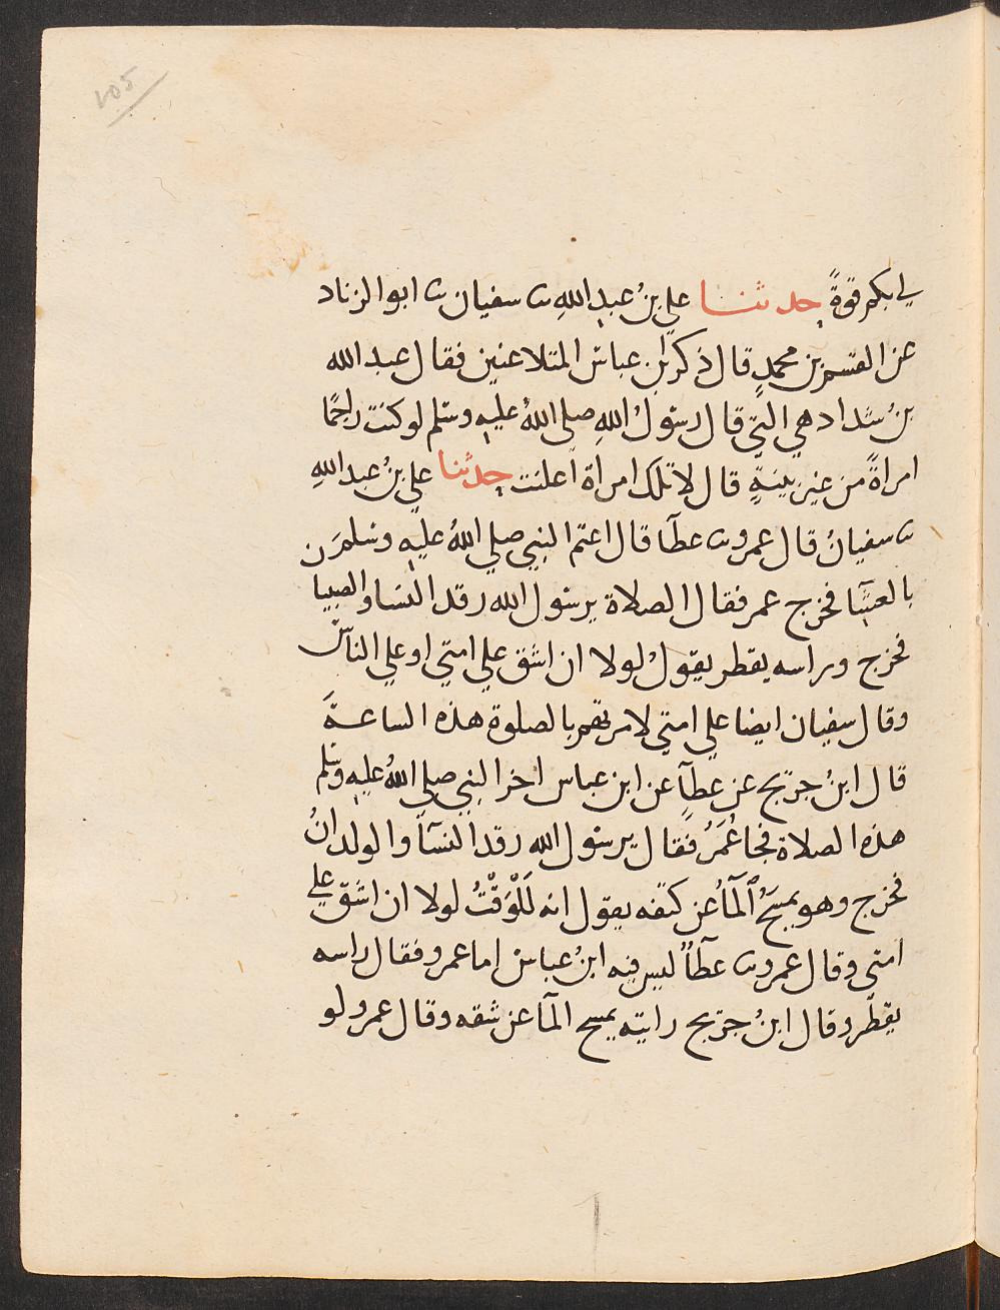 ١٠٥
لي بكم قوةً حدثنا علي بنُ عبدِ اللهِ ثنا سفيان ثنا ابو الزناد
عن القسم بن محمدٍ قال ذكر ابن عباس المتلاعنين فقال عبد الله
بنُ شداد هي التي قال رسولُ اللهِ صلى اللهُ عليهِ وسلم لو كنت راجمًا
امراةً من غير بينةٍ قال لا تلك امراة اعلنت حدثنا علي بنُ عبدِ اللهِ
ثنا سفيانُ قال عمرو ثنا عطآ قال اعتم النبي صلي اللهُ عليهِ وسلم
بالعشآ فخرج عمر فقال الصلاة يرسول الله رقد النسا والصبيا
فخرج وراسه يقطر يقولُ لولا ان اشق علي امتي او علي الناس
وقال سفيان ايضا علي امتي لامرتهم بالصلوة هذه الساعةَ
قال ابنُ جريج عن عطآءٍ عن ابن عباس اخر النبي صلي اللهُ عليهِ وسلم
هذه الصلاة فجا عُمَرُ فقال يرسول الله رقد النسآ والولدانُ
فخرج وهو يمسَحُ المآءُ عن كتفه يقول انه لَلْوَقْتُ لولا ان اشق علي
امتي وقال عمرو ثنا عطآءٌ ليس فيه ابنُ عباس اما عمرو فقال راسه
يقطر وقال ابنُ جريج رايته يمسح المآ عن شقه وقال عمرو لو